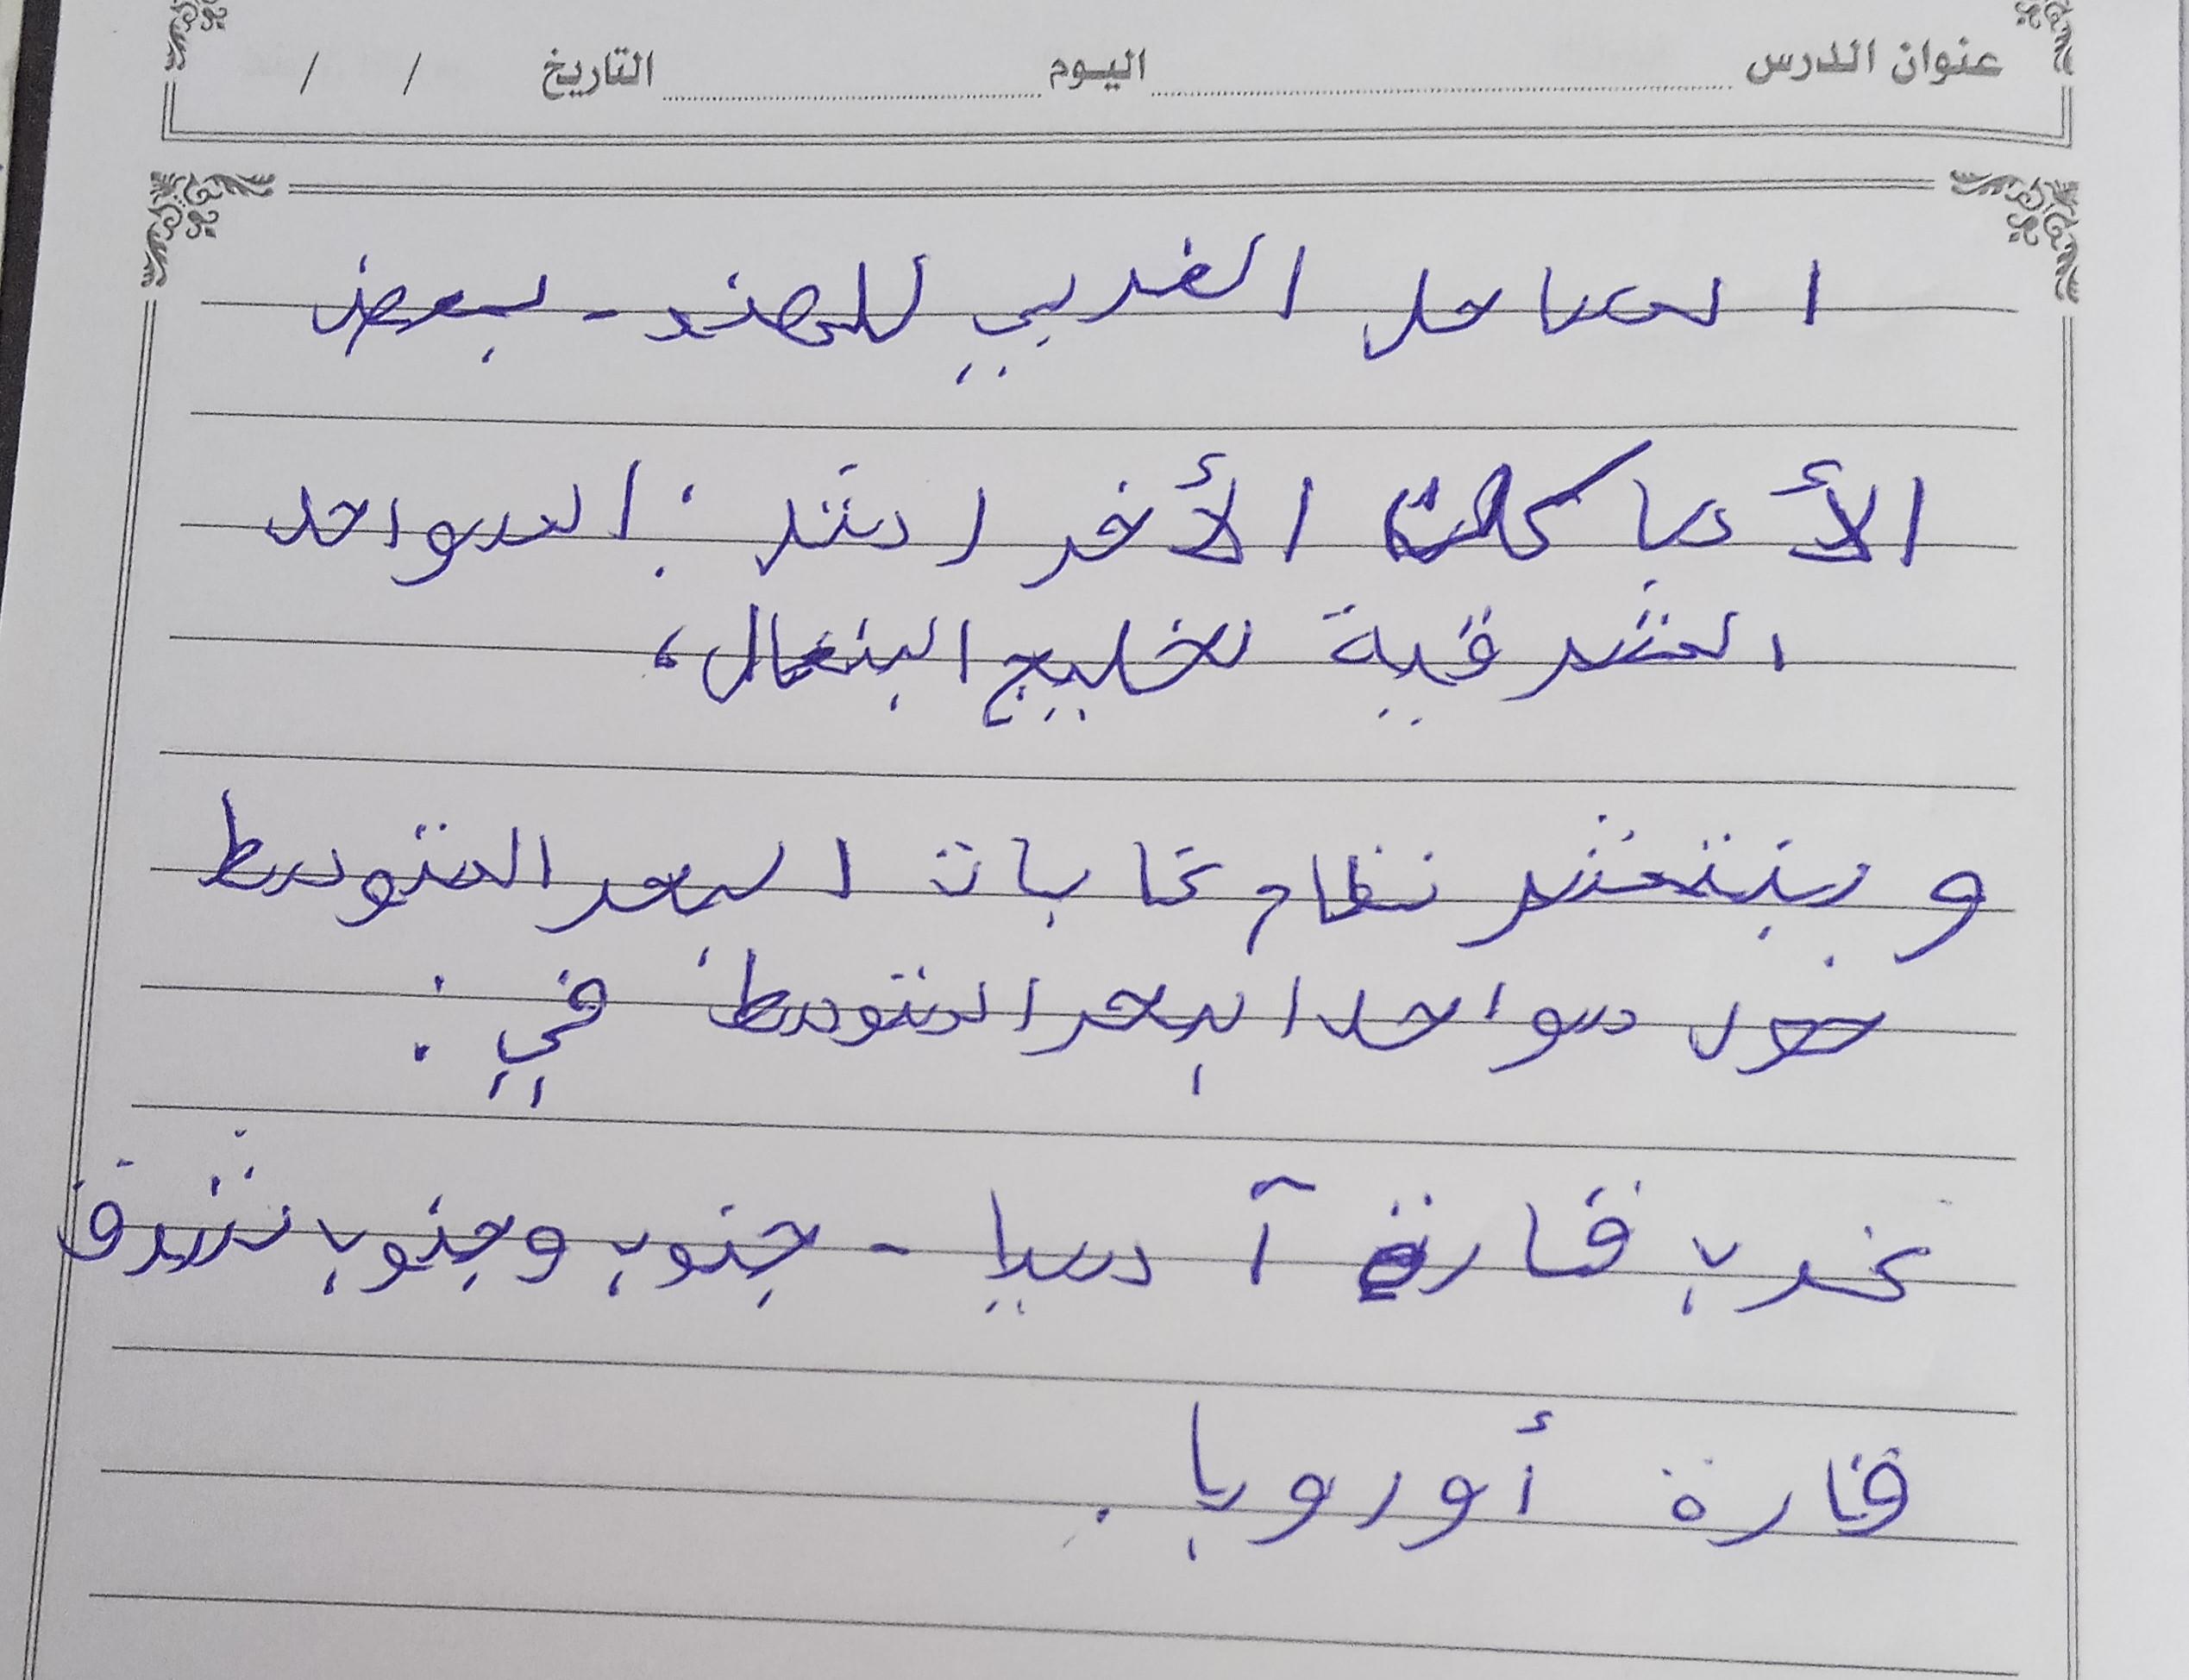 عنوان الدرس اليوم التاريخ / /
الساحل الغربي للهند - بعض
الأماكن الأخرا مثل : السواحد
الشرقية لخليج البنغال،
و ينتشر نظام غابات البحر المتوسط
حول سواحد البحر المتوسط في :
غرب قارة آسيا - جنوب وجنوب شرق
قارة أوروبا .